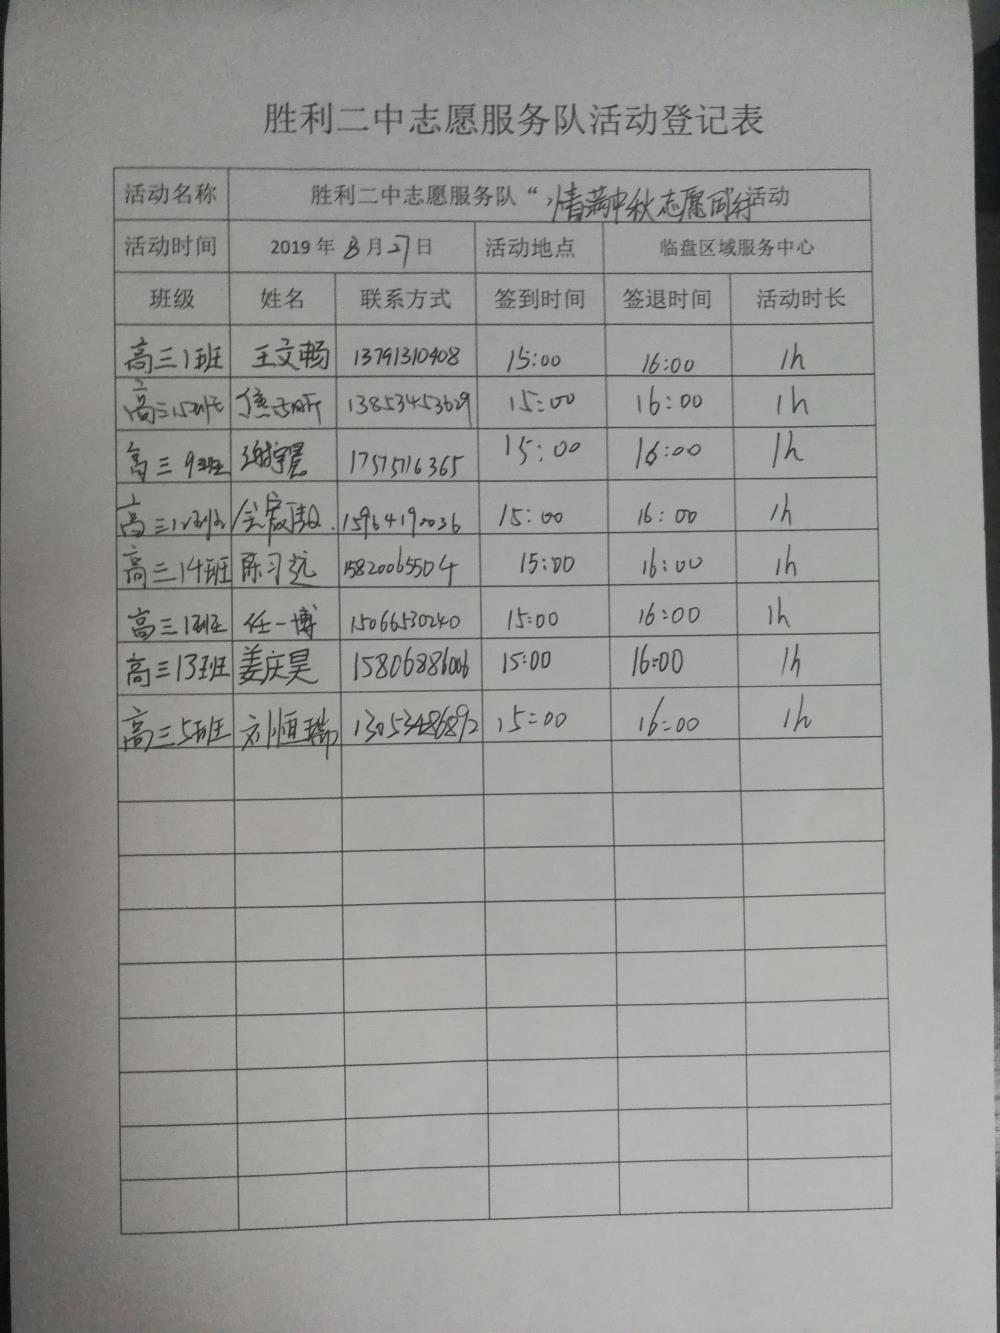 胜利二中志愿服务队活动登记表
活动名称 胜利二中志愿服务队“情满中秋志愿同行”活动
活动时间 2019年8月27日 活动地点 临盘区域服务中心
班级 姓名 联系方式 签到时间 签退时间 活动时长
高三1班 王文畅 13791310408 15:00 16:00 1h
高三15班 13853453629 15:00 16:00 1h
高三9班 17575716365 15:00 16:00 1h
高三12班 15964190036 15:00 16:00 1h
高三14班 陈习远 15820065504 15:00 16:00 1h
高三1班 任一博 15066530240 15:00 16:00 1h
高三13班 姜庆昊 15806886006 15:00 16:00 1h
高三5班 刘恒瑞 13053486892 15:00 16:00 1h